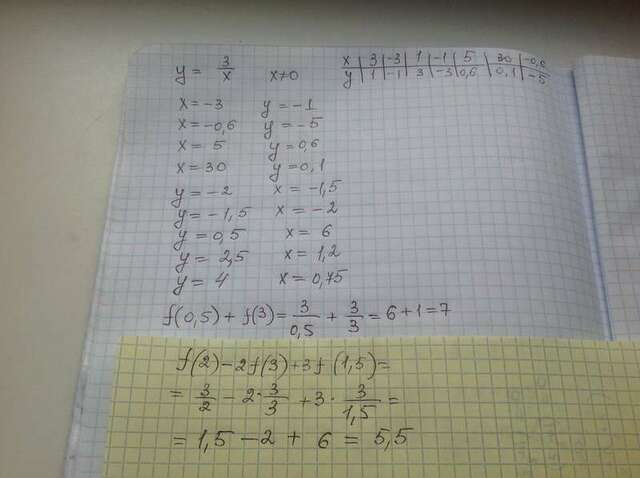 y = 3/x   x≠0
x | 3 | -3 | 1 | -1 | 5 | 30 | -0,6
y | 1 | -1 | 3 | -3 | 0,6 | 0,1 | -5
x = -3   y = -1
x = -0,6   y = -5
x = 5   y = 0,6
x = 30   y = 0,1
y = -2   x = -1,5
y = -1,5   x = -2
y = 0,5   x = 6
y = 2,5   x = 1,2
y = 4   x = 0,75
f(0,5) + f(3) = 3/0,5 + 3/3 = 6 + 1 = 7
f(2) - 2f(3) + 3f(1,5) =
= 3/2 - 2·3/3 + 3·3/1,5 =
= 1,5 - 2 + 6 = 5,5